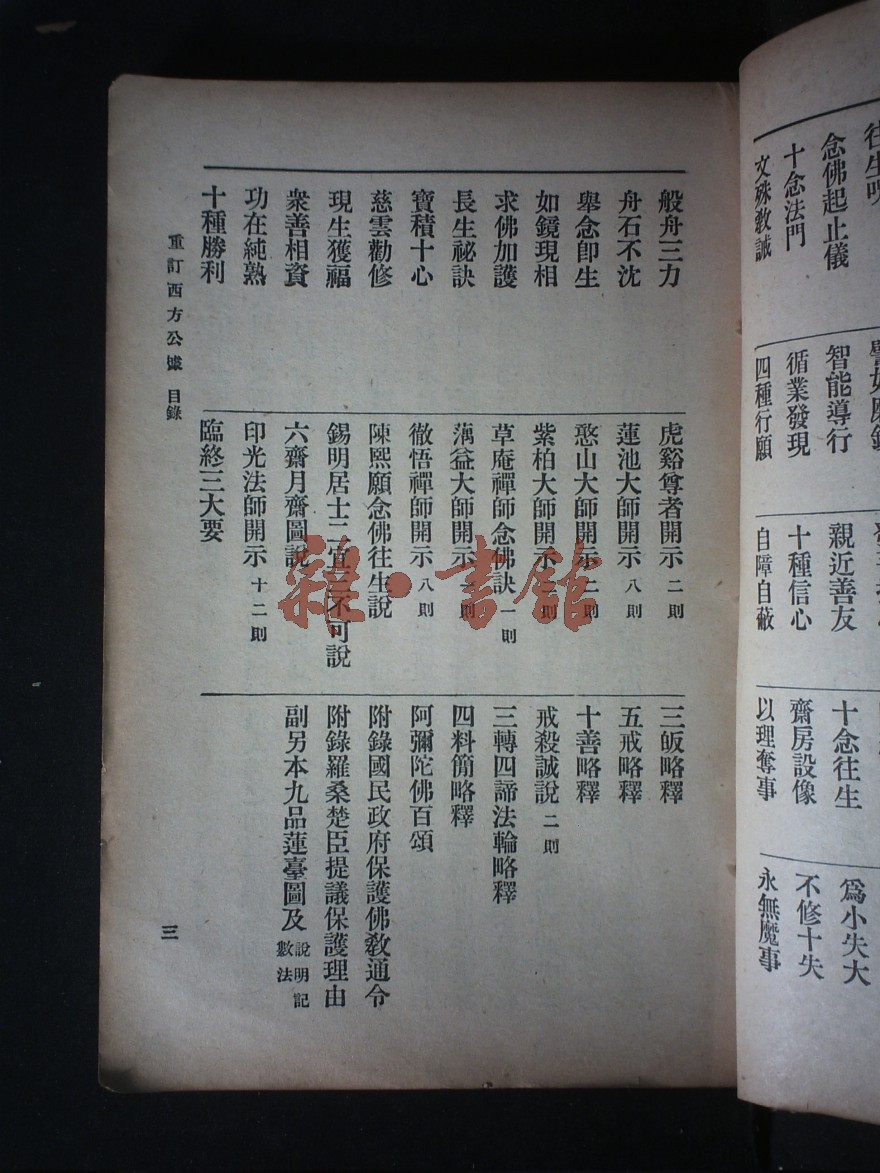 往生咒
念佛起止儀
十念法門
文殊教誡
智能導行
循業發現
四種行願
親近善友
十種信心
自障自蔽
十念往生
齋房設像
以理奪事
爲小失大
不修十失
永無魔事
般舟三力
舟石不沈
舉念卽生
如鏡現相
求佛加護
長生祕訣
寶積十心
慈雲勸修
現生獲福
衆善相資
功在純熟
十種勝利
虎谿尊者開示 二則
蓮池大師開示 八則
憨山大師開示 二則
紫柏大師開示 則
草庵禪師念佛訣 一則
蕅益大師開示 則
徹悟禪師開示 八則
陳熙願念佛往生說
錫明居士二宜 不可說
六齋月齋圖說
印光法師開示 十二則
臨終三大要
三皈略釋
五戒略釋
十善略釋
戒殺誠說 二則
三轉四諦法輪略釋
四料簡略釋
阿彌陀佛百頌
附錄國民政府保護佛敎通令
附錄羅桑楚臣提議保護理由
副另本九品蓮臺圖及說明記數法
重訂西方公據 目錄
三
雜·書館